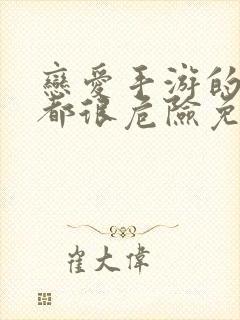 戀愛手游的
都很危險免
崔大偉